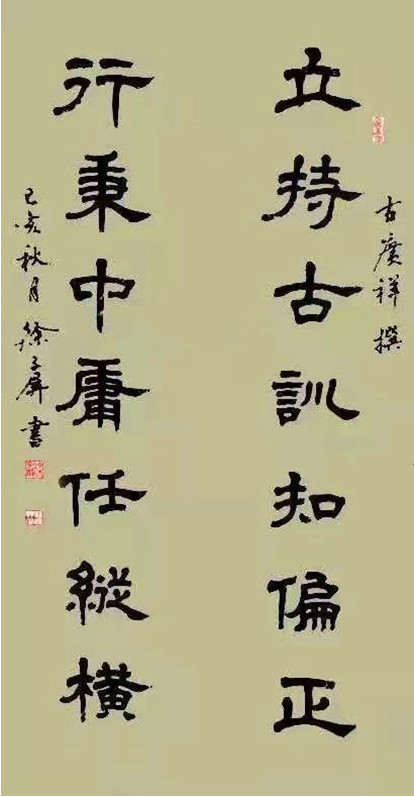 立持古訓知偏正
古廣祥撰
行秉中庸任縱橫
己亥秋月徐子屏書